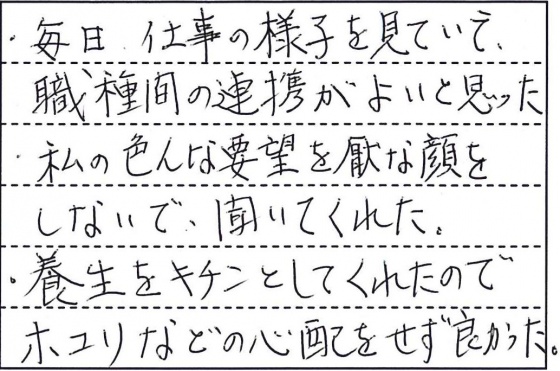 ・毎日 仕事の様子を見ていて、
職種間の連携がよいと思った
・私の色んな要望を厭な顔を
しないで、聞いてくれた。
・養生をキチンとしてくれたので
ホコリなどの心配をせず良かった。